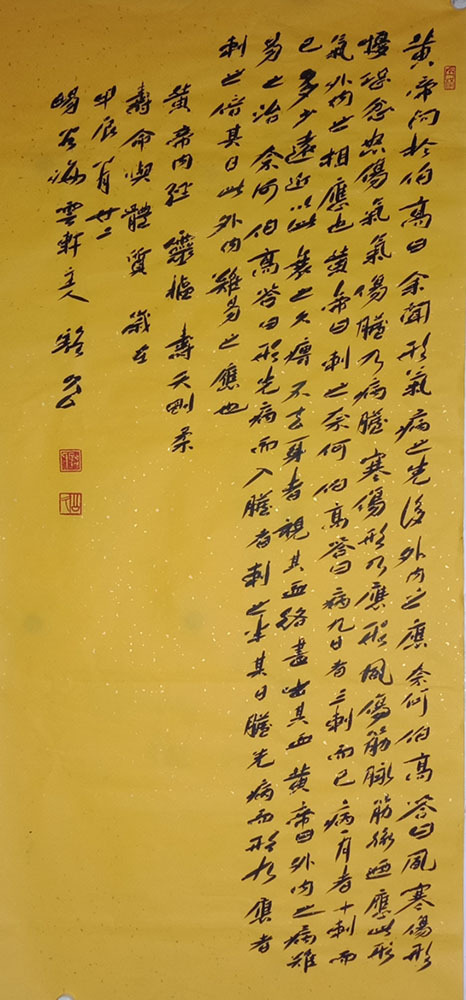 黃帝問於伯高曰余聞形氣病之先後外內之應奈何伯高答曰風寒傷形
憂恐忿怒傷氣氣傷臟乃病臟寒傷形乃應形風傷筋脈筋脈迺應此形
氣外內之相應也黃帝曰刺之奈何伯高答曰病九日者三刺而已病一月者十刺而
已多少遠近以此衰之久痹不去身者視其血絡盡出其血黃帝曰外內之病難
易之治奈何伯高答曰形先病而入臟者刺之半其日臟先病而形乃應者
刺之倍其日此外內難易之應也
黃帝內經 靈樞 壽夭剛柔
壽命與體質 歲在
甲辰八月廿二
暘谷海雲軒主人